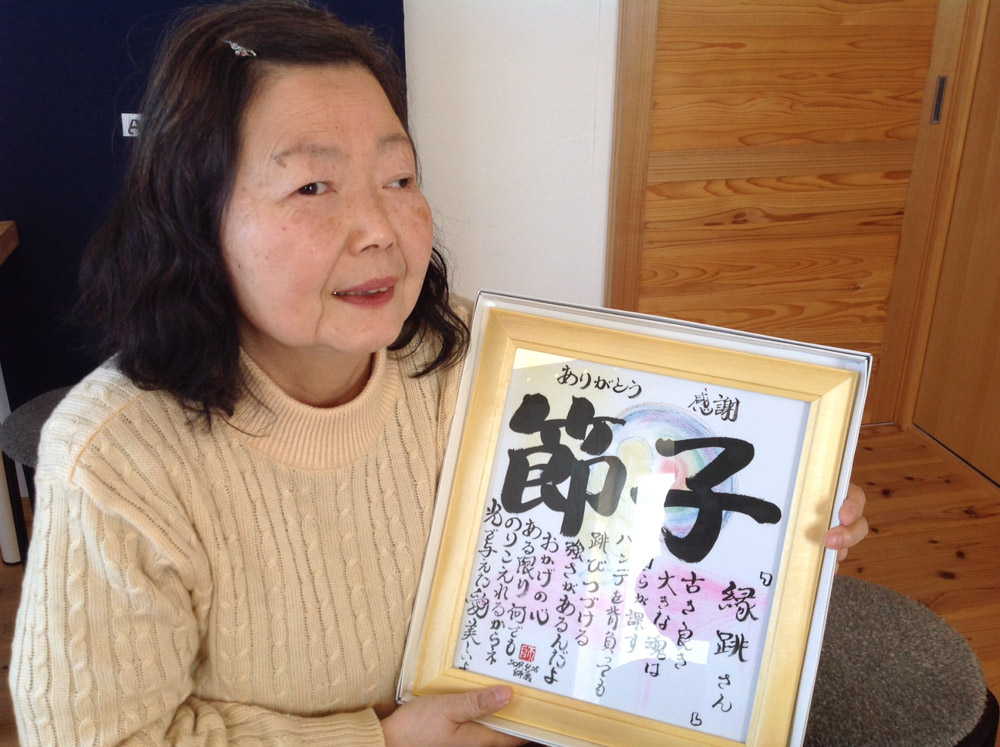 ありがとう
感謝
節子
「縁跳さん」
古き良き
大きな魂は
自らが課す
ハンデを背負っても
跳びつづける
強さがあるんだよ
おかげの心
ある限り何でも
のりこえれるからネ
光を与えた
美しいよ